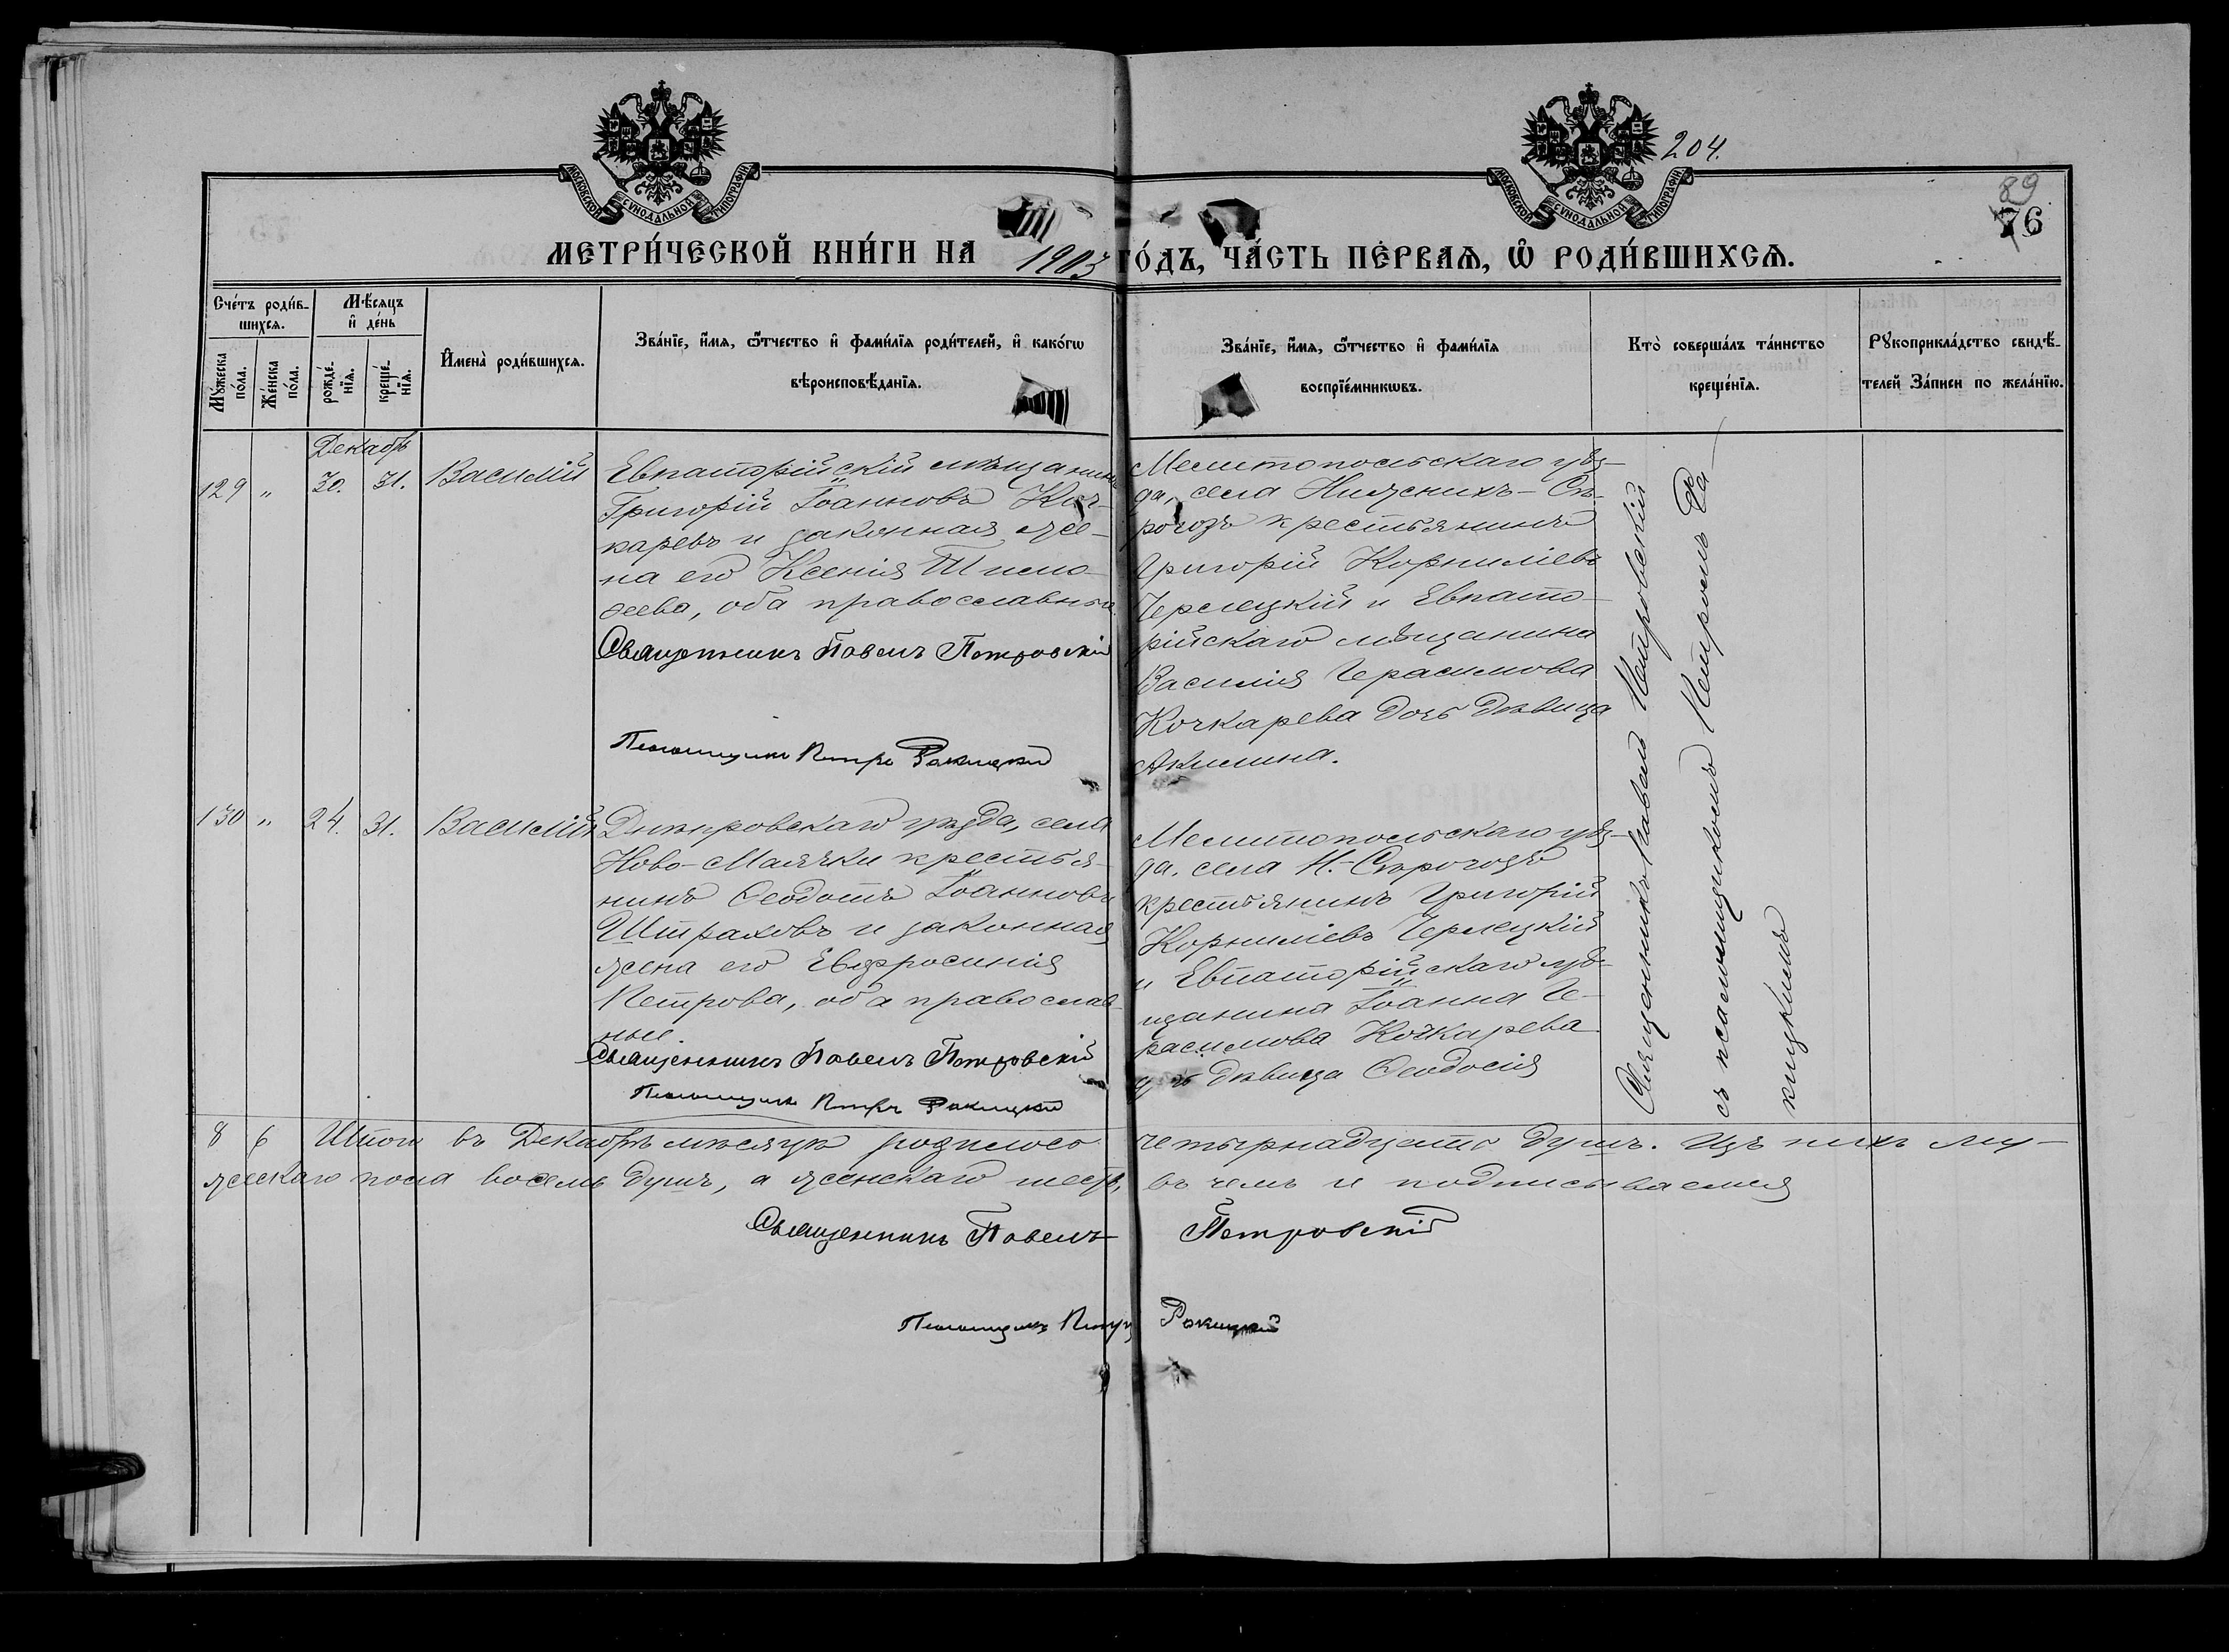 МОСКОВСКОЙ СУНОДАЛЬНОЙ ТИПОГРАФІИ
МОСКОВСКОЙ СУНОДАЛЬНОЙ ТИПОГРАФІИ
204.
89
76
МЕТРИ́ЧЕСКОЙ КНИ́ГИ НА 1903 ГО́ДЪ, ЧА́СТЬ ПЕ́РВАѦ, Ѡ҆ РОДИ́ВШИХСѦ.
Сче́тъ роди́в-
шихсѧ.
Мꙋ́жеска
по́ла.
Же́нска
по́ла.
Мѣ́сѧцъ
и҆ де́нь
рожде́-
нїѧ.
креще́-
нїѧ.
И҆мена̀ роди́вшихсѧ.
Зва́нїе, и҆́мѧ, ѻ҆́тчество и҆ фами́лїѧ роди́телей, и҆ како́гѡ
вѣроисповѣ́данїѧ.
Зва́нїе, и҆́мѧ, ѻ҆́тчество и҆ фами́лїѧ
воспрїе́мникѡвъ.
Кто̀ соверша́лъ та́инство
креще́нїѧ.
Рꙋкоприкла́дство свидѣ́-
телей За́писи по жела́нїю.
Декабрь
129 " 30. 31. Василій
Евпаторійскій мѣщанинъ
Григорій Іоанновъ Коч-
каревъ и законная же-
на его Ксенія Тимо-
ѳеева, оба православные.
Священникъ Павелъ Петровскій
Псаломщикъ Петръ Ракицкій
Мелитопольскаго уѣз-
да, села Нижнихъ-Сѣ-
рогозъ крестьянинъ
Григорій Корниліевъ
Черлецкій и Евпато-
рійскаго мѣщанина
Василія Герасимова
Кочкарева дочь дѣвица
Акилина.
130 " 24. 31. Василій
Днѣпровскаго уѣзда, села
Ново-Маячки крестья-
нинъ Ѳеодотъ Іоанновъ
Штраховъ и законная
жена его Евфросинія
Петрова, оба православ-
ные.
Священникъ Павелъ Петровскій
Псаломщикъ Петръ Ракицкій
Мелитопольскаго уѣз-
да, села Н.-Сѣрогозъ
крестьянинъ Григорій
Корниліевъ Черлецкій
и Евпаторійскаго мѣ-
щанина Іоанна Ге-
расимова Кочкарева
дочь дѣвица Ѳеодосія
Священникъ Павелъ Петровскій
съ псаломщикомъ Петромъ Ра-
кицкимъ
8 6 Итого въ Декабрѣ мѣсяцѣ родилось четырнадцать душъ. Изъ нихъ му-
жескаго пола восемь душъ, а женскаго шесть, въ чемъ и подписываемся
Священникъ Павелъ Петровскій
Псаломщикъ Петръ Ракицкій